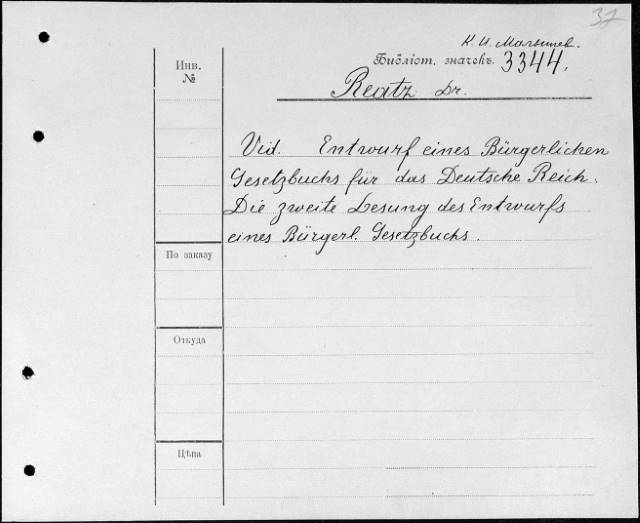 37
К. И. Малышев.
Инв. №
Библіот. значекъ 3344.
Reatz Dr.
Vid. Entwurf eines Bürgerlichen
Gesetzbuchs für das Deutsche Reich.
Die zweite Lesung des Entwurfs
eines Bürgerl. Gesetzbuchs.
По заказу
Откуда
Цѣна